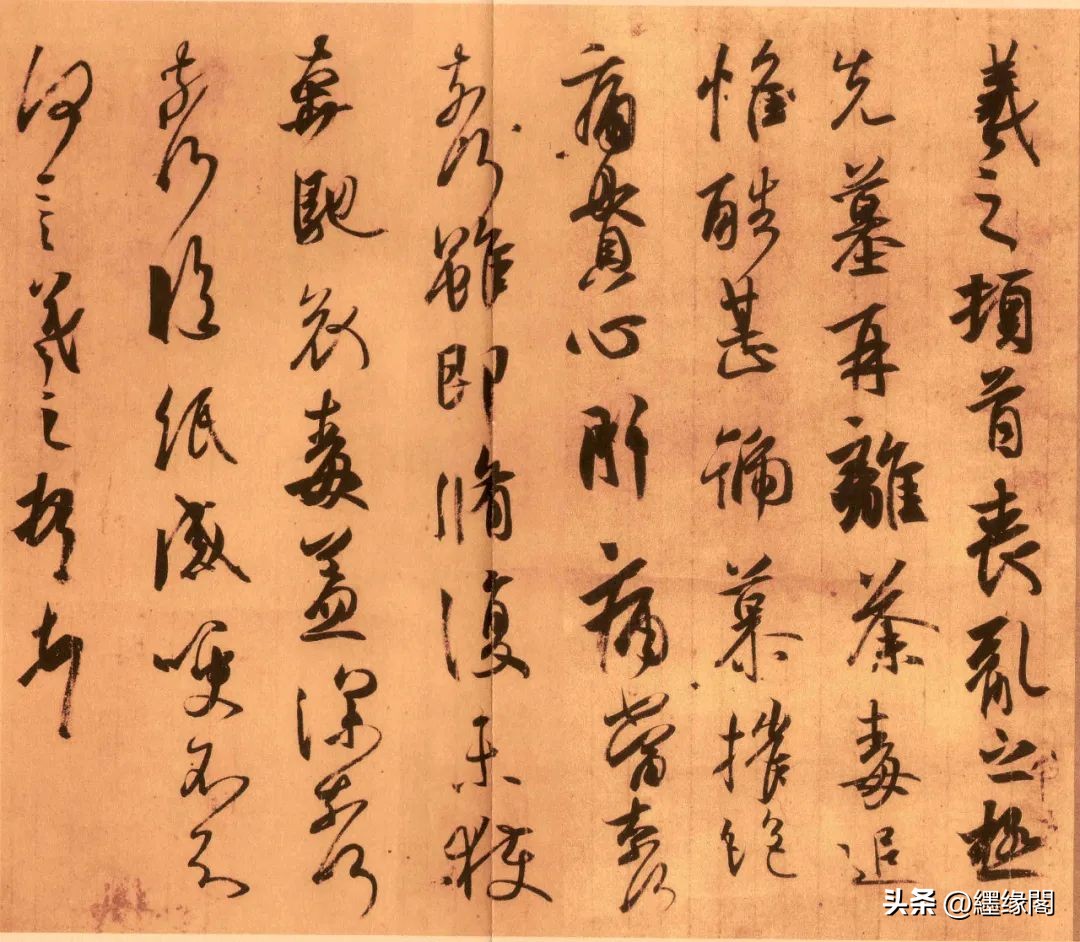 羲之頓首喪亂之極
先墓再離荼毒追
惟酷甚號慕摧絕
痛貫心肝痛當奈何
奈何雖即脩復未獲
奔馳哀毒益深奈何
奈何臨紙感哽不知
何言羲之頓首頓首
头条 @纆缘閣